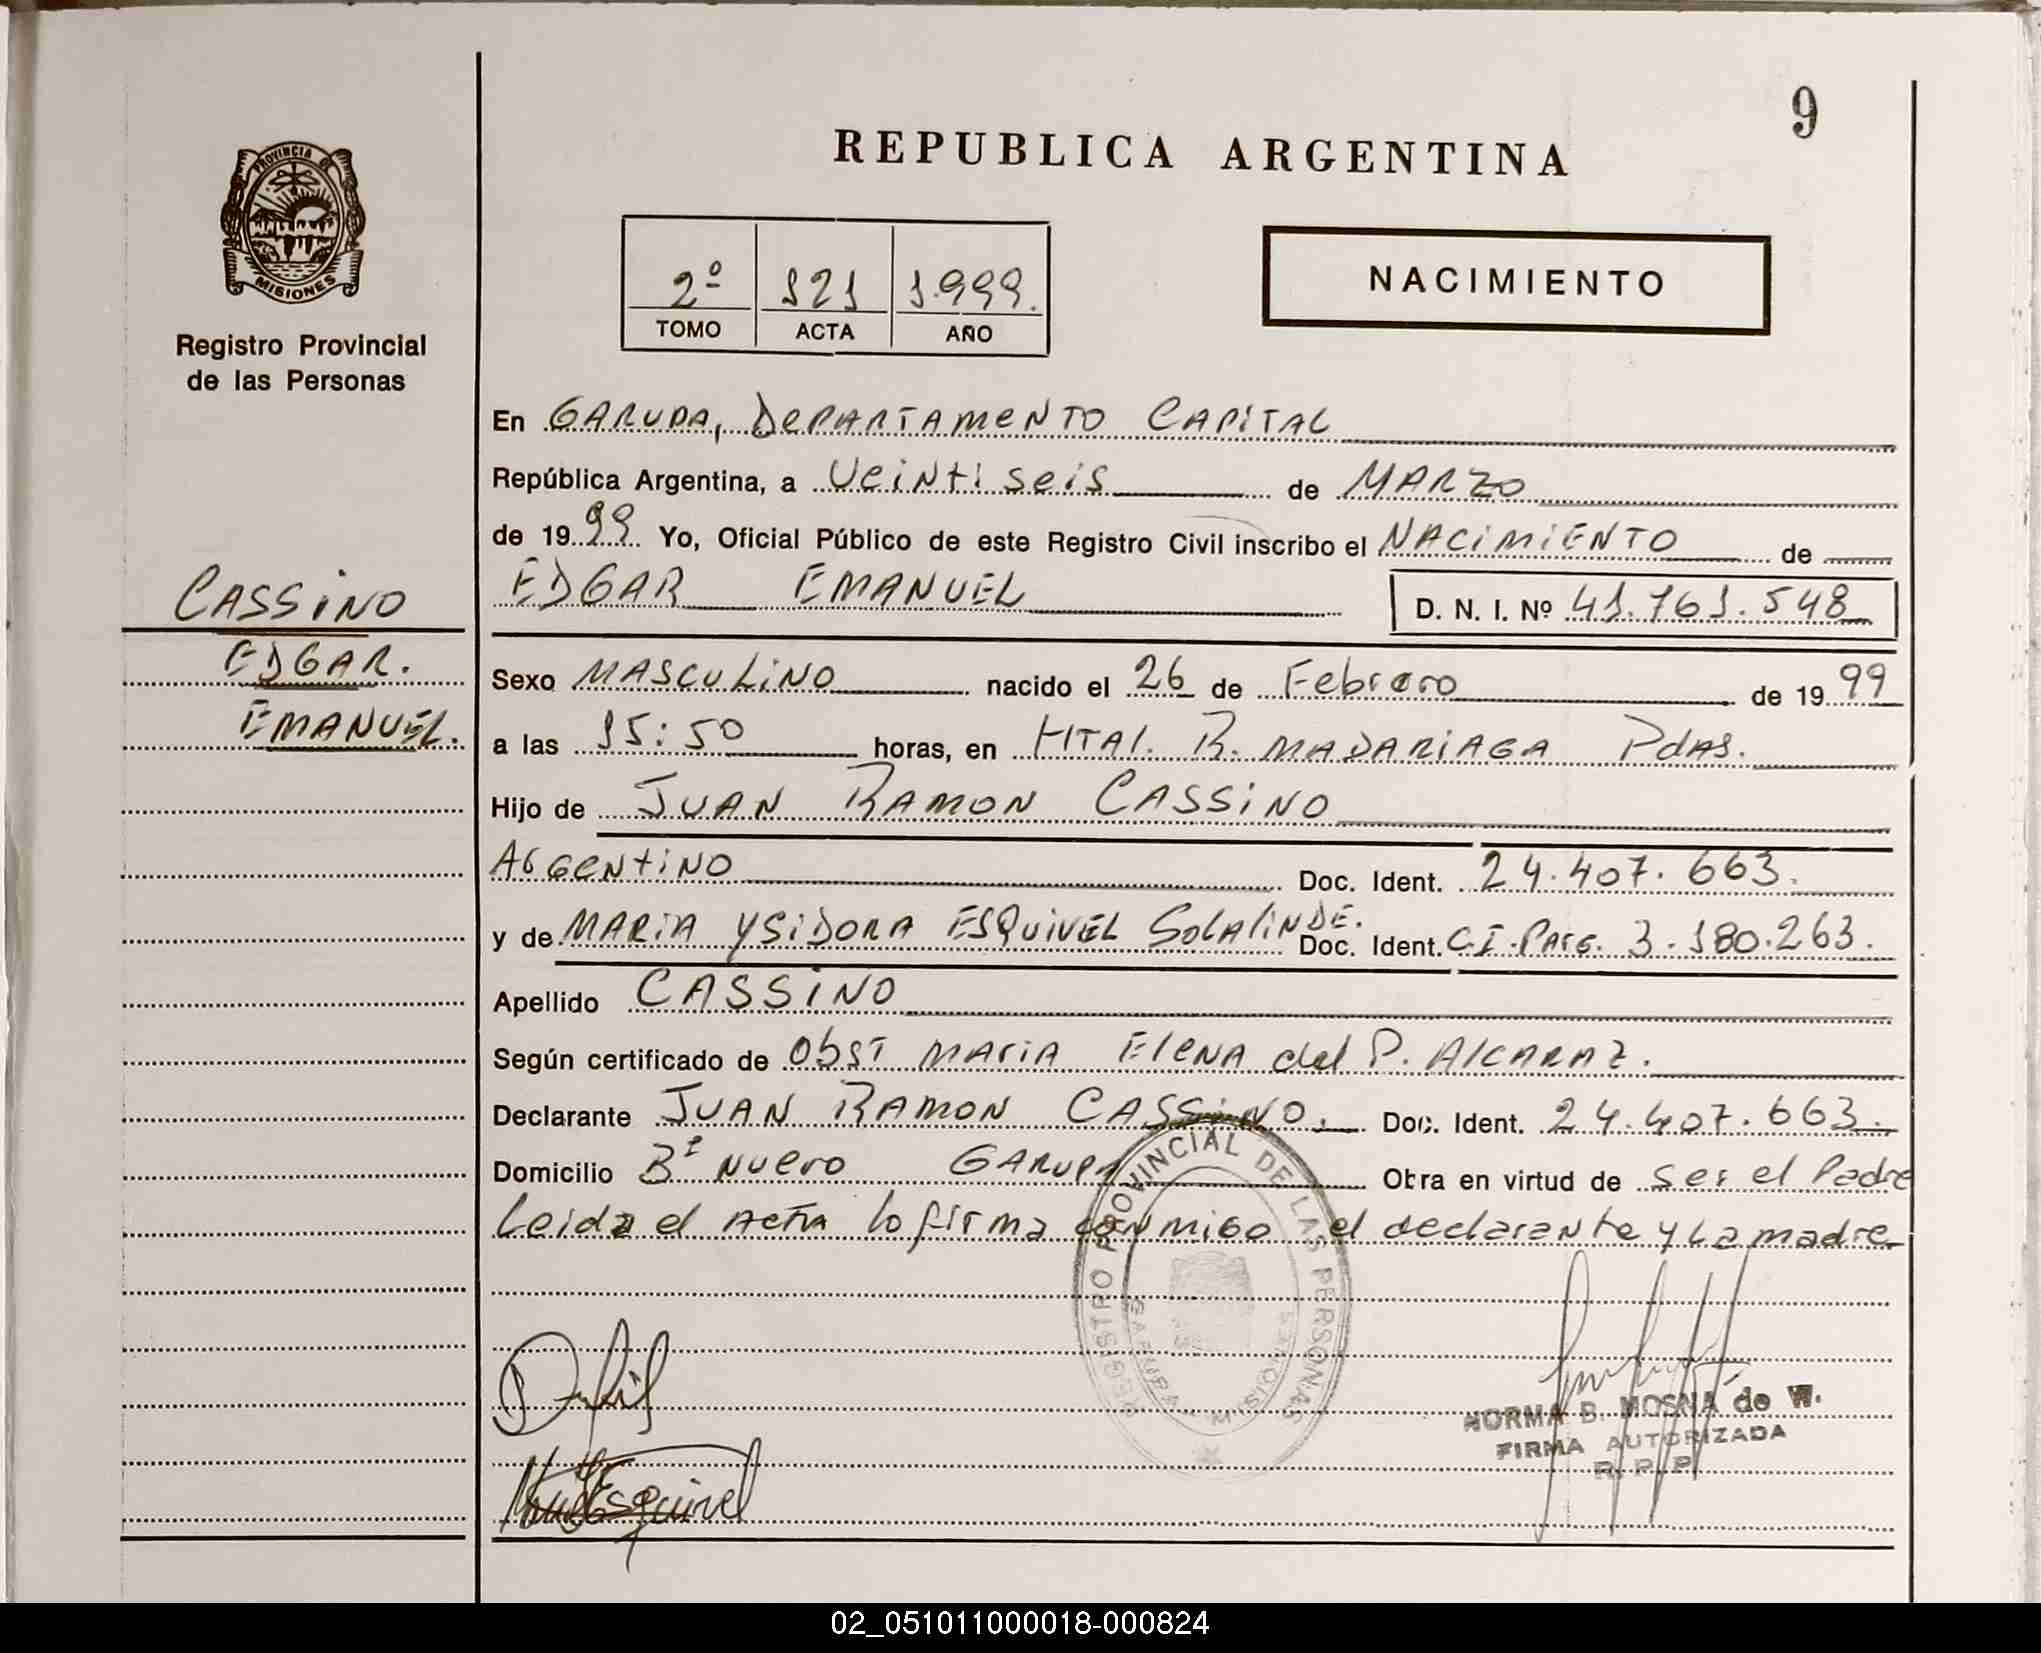 9
REPUBLICA ARGENTINA
PROVINCIA DE
MISIONES
Registro Provincial
de las Personas
2º 121 1.999.
TOMO ACTA AÑO
NACIMIENTO
En GARUPA, DEPARTAMENTO CAPITAL
República Argentina, a Veintiseis de MARZO
de 1999 Yo, Oficial Público de este Registro Civil inscribo el NACIMIENTO de
EDGAR EMANUEL D. N. I. Nº 41.761.548
CASSINO
EDGAR.
EMANUEL.
Sexo MASCULINO nacido el 26 de Febrero de 1999
a las 15:50 horas, en HTAl. R. MADARIAGA PdAS.
Hijo de JUAN RAMON CASSINO
ArGentino Doc. Ident. 24.407.663.
y de MARIA YSIDORA ESQUIVEL SOLALINDE. Doc. Ident. C.I. Parg. 3.180.263.
Apellido CASSINO
Según certificado de Obst MARIA ElENA del P. AlCARAZ.
Declarante JUAN RAMON CASSINO. Doc. Ident. 24.407.663.
Domicilio Bº NUEVO GARUPA Obra en virtud de Ser el Padre
Leida el Acta lo firma conmigo el declarante y La madre
REGISTRO PROVINCIAL DE LAS PERSONAS
GARUPA - MISIONES
Esquivel
NORMA B. MOSNA de W.
FIRMA AUTORIZADA
R. P. P.
02_051011000018-000824